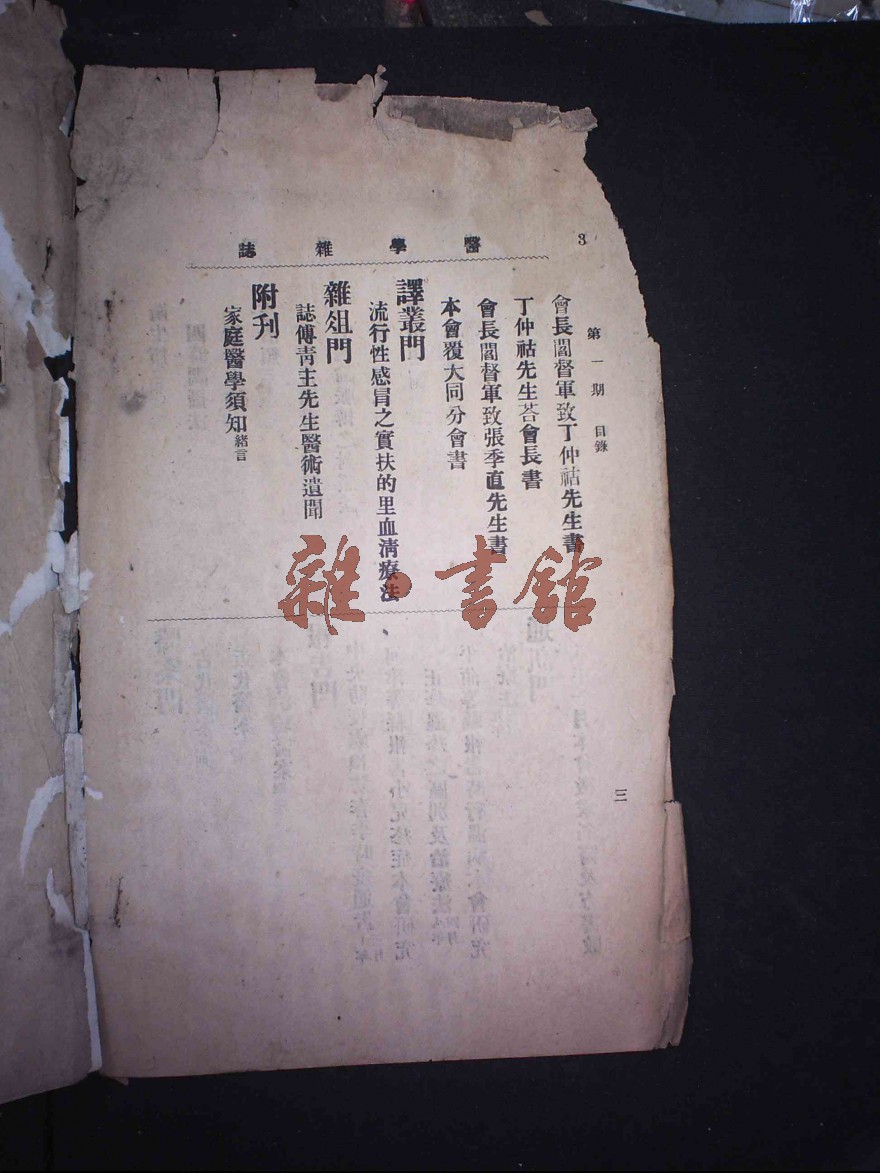 3
醫學雜誌
第一期 目錄
會長閻督軍致丁仲祜先生書
丁仲祜先生荅會長書
會長閻督軍致張季直先生書
本會覆大同分會書
譯叢門
流行性感冒之實扶的里血清療法
雜俎門
誌傅青主先生醫術遺聞
附刊
家庭醫學須知緒言
三
雜·書館